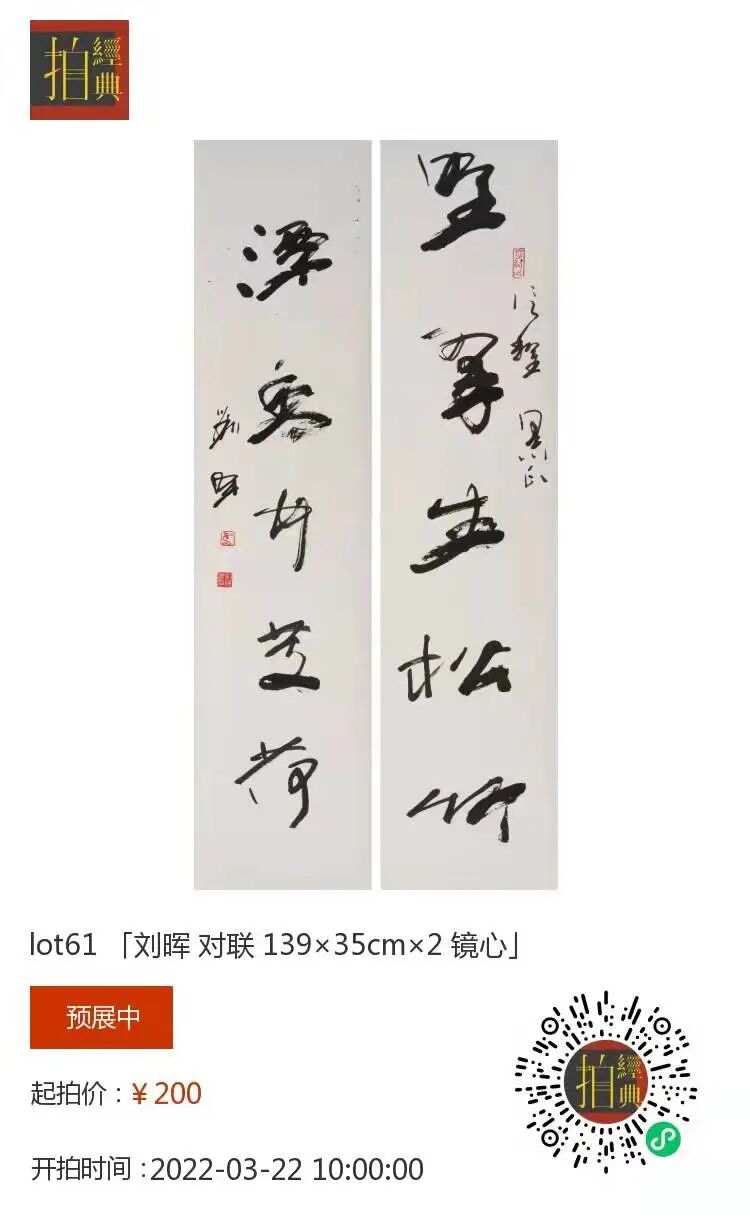 拍經典
野翠生松竹
潭香聞芰荷
劉暉
lot61 「刘晖 对联 139×35cm×2 镜心」
预展中
起拍价：¥200
开拍时间：2022-03-22 10:00:00
拍經典